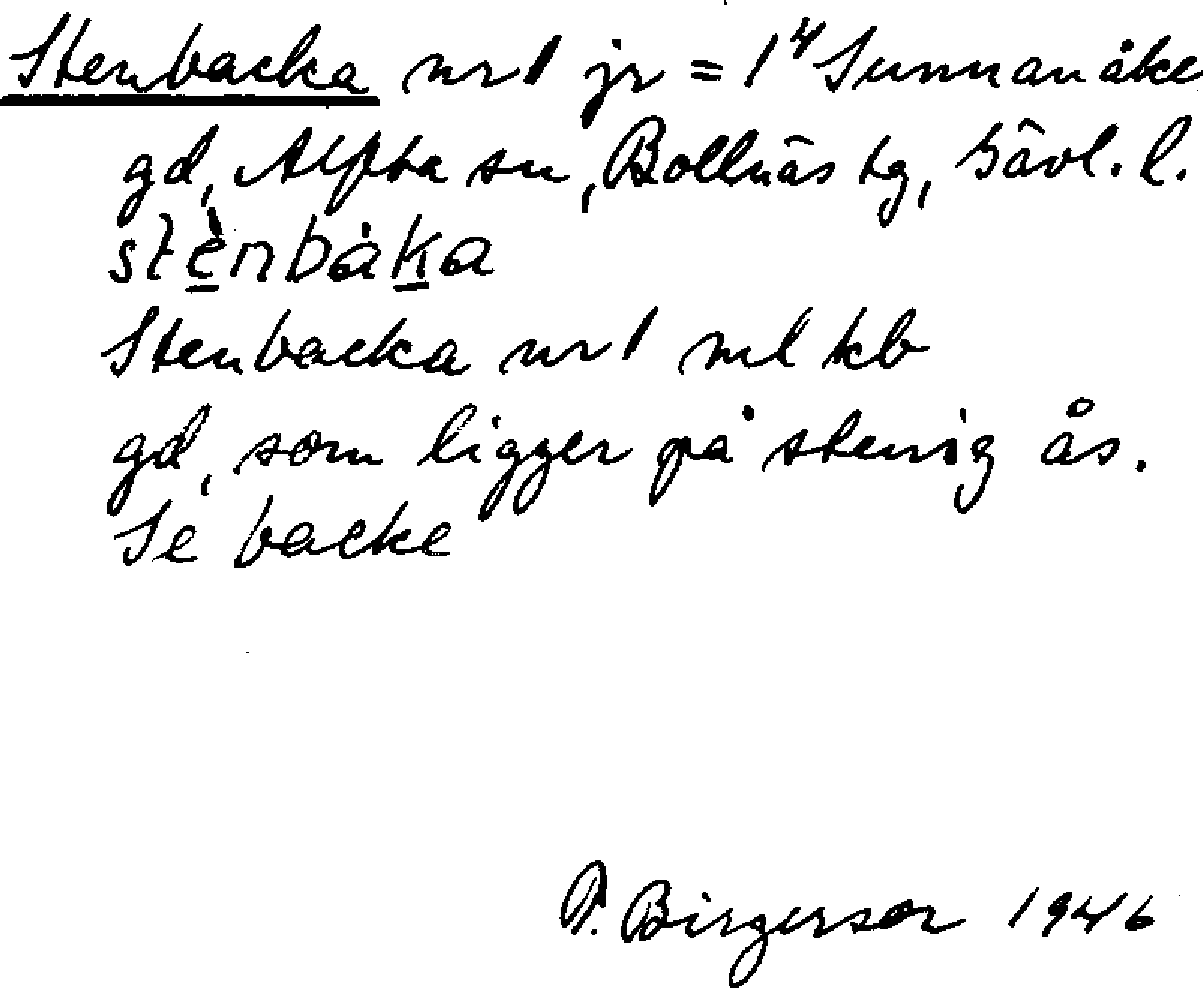 Stenbacka nr 1 jr = 1⁴ Sunnanåke
gd, Alfta sn, Bollnäs tg, Gävl. l.
stènbàka
Stenbacka nr 1 ml kb
gd, som ligger på stenig ås.
Se backe
P. Birgerson 1946